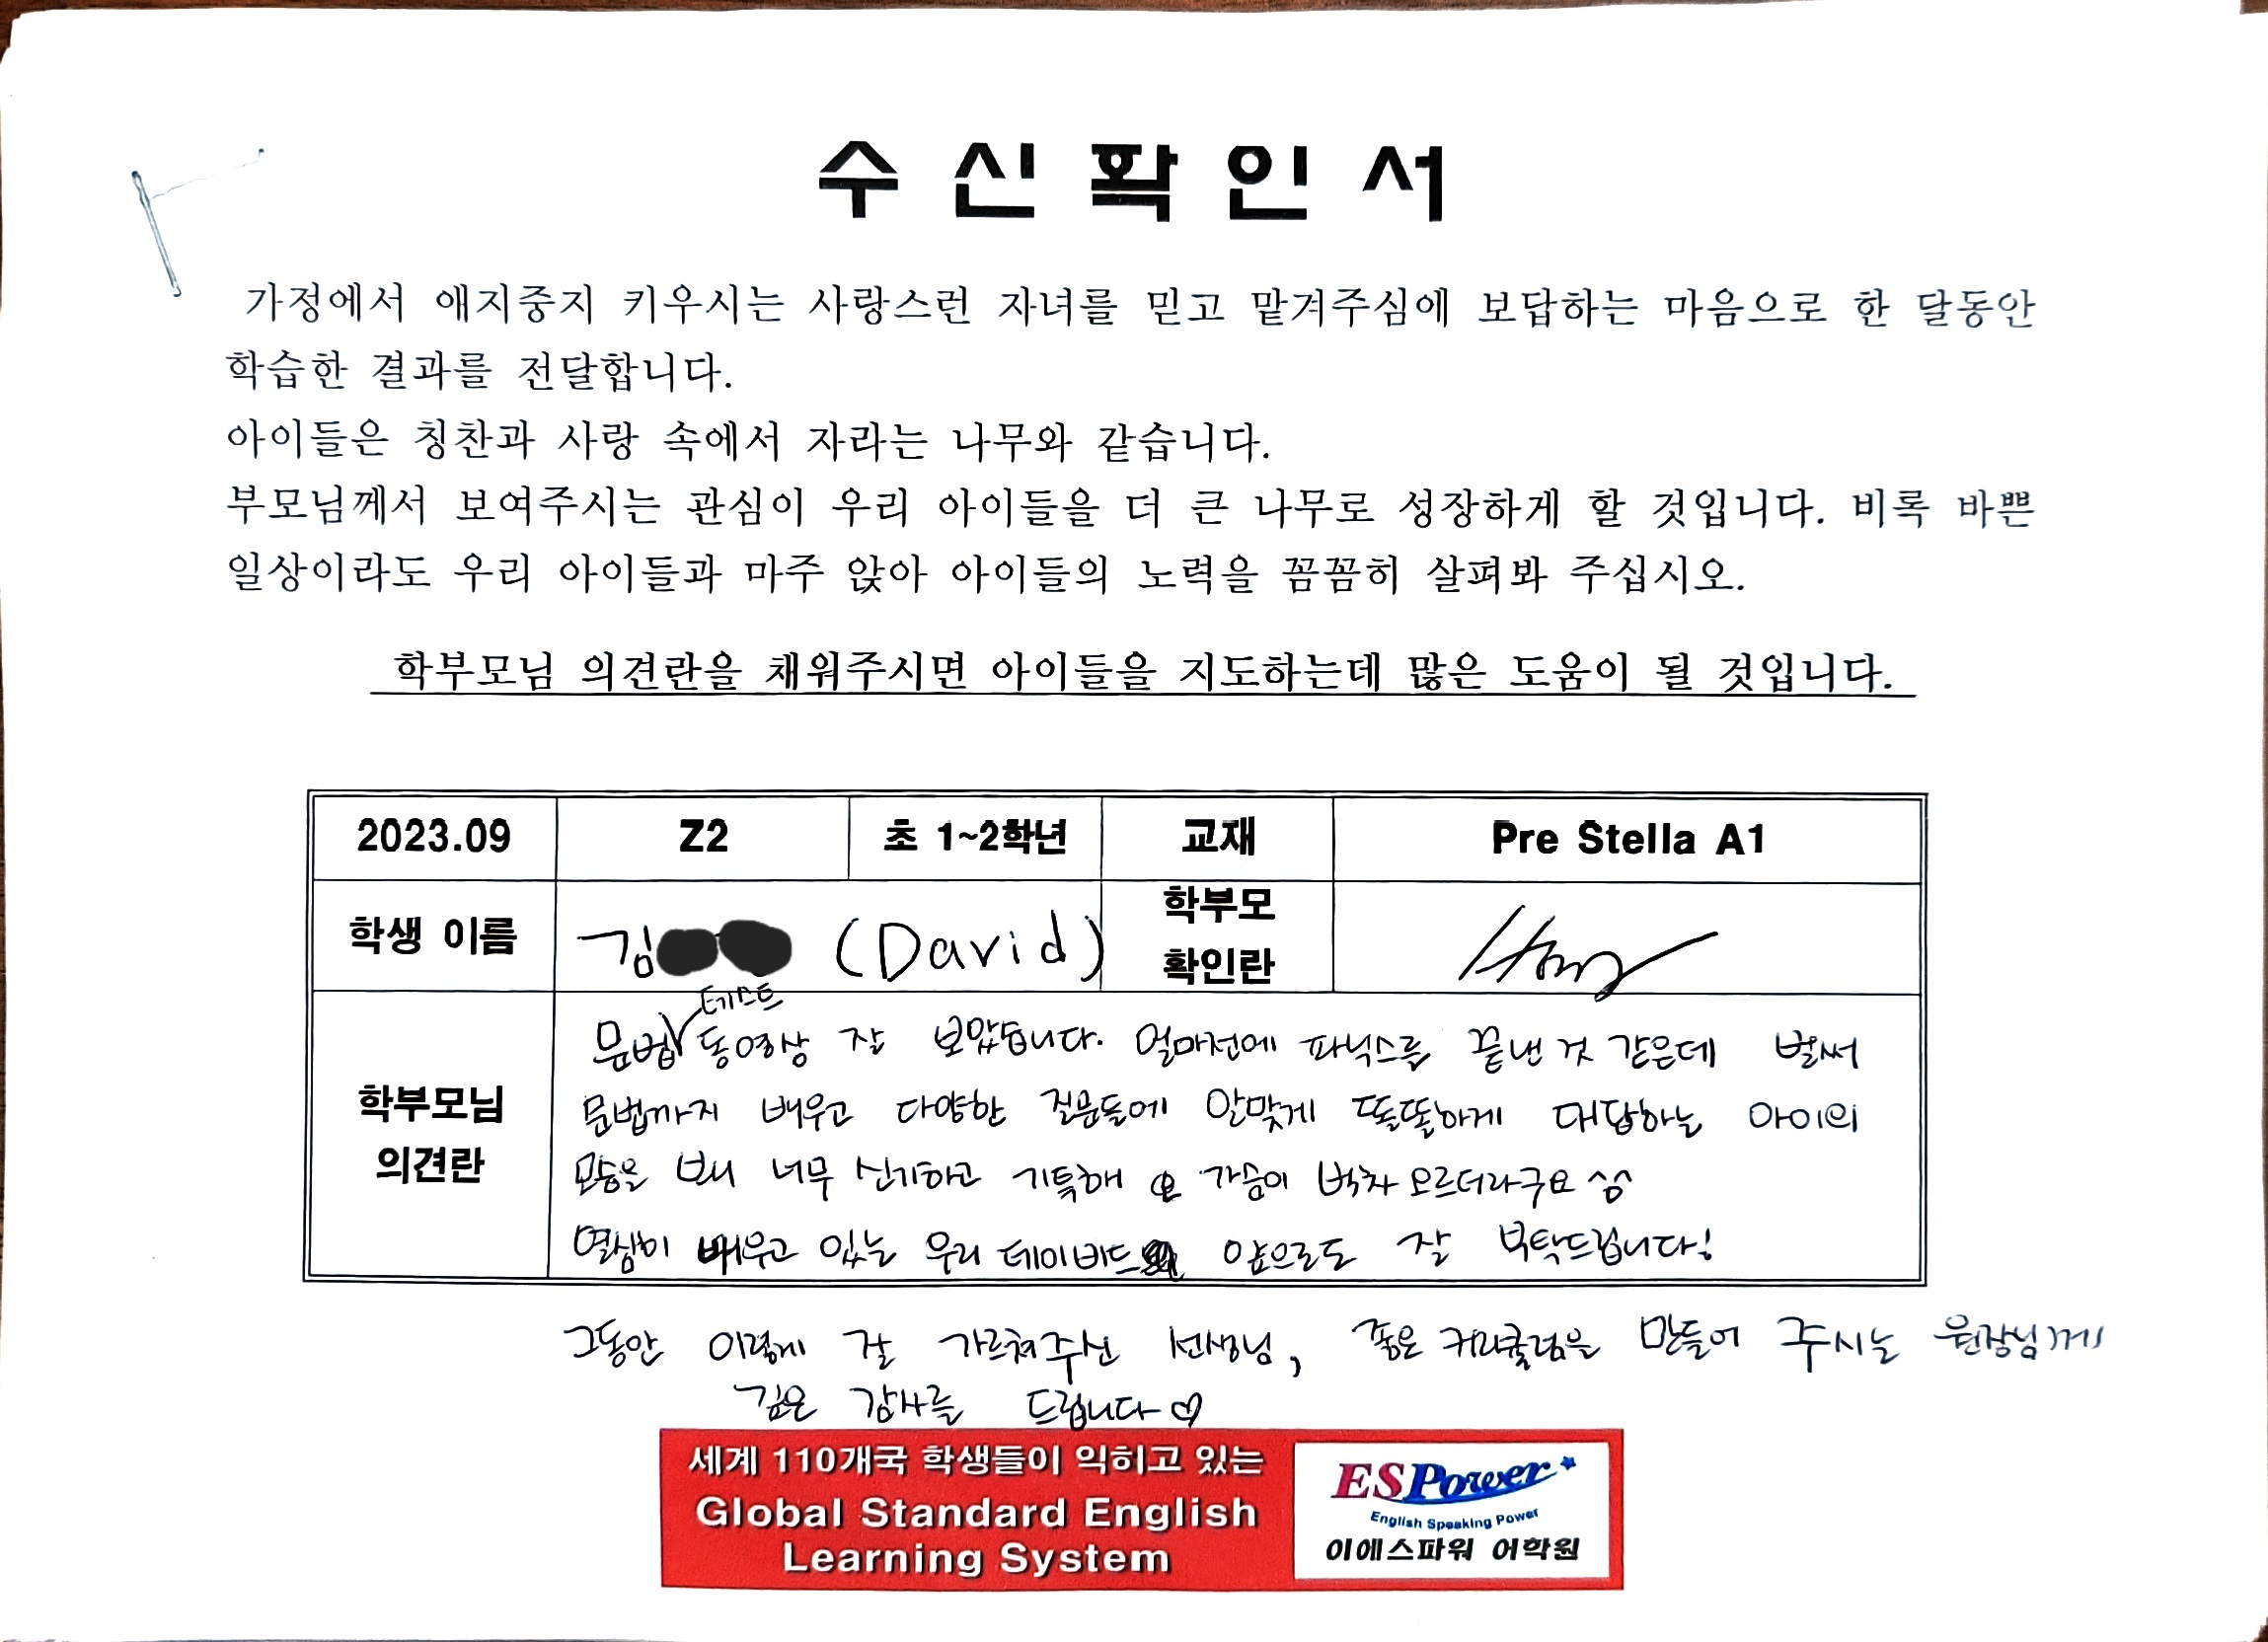 수신확인서
가정에서 애지중지 키우시는 사랑스런 자녀를 믿고 맡겨주심에 보답하는 마음으로 한 달동안
학습한 결과를 전달합니다.
아이들은 칭찬과 사랑 속에서 자라는 나무와 같습니다.
부모님께서 보여주시는 관심이 우리 아이들을 더 큰 나무로 성장하게 할 것입니다. 비록 바쁜
일상이라도 우리 아이들과 마주 앉아 아이들의 노력을 꼼꼼히 살펴봐 주십시오.
학부모님 의견란을 채워주시면 아이들을 지도하는데 많은 도움이 될 것입니다.
2023.09 Z2 초 1~2학년 교재 Pre Stella A1
학생 이름 김 (David) 학부모 확인란
학부모님 의견란
문법 테스트 동영상 잘 보았습니다. 얼마전에 파닉스를 끝낸 것 같은데 벌써
문법까지 배우고 다양한 질문들에 알맞게 똘똘하게 대답하는 아이의
모습을 보니 너무 신기하고 기특해 가슴이 벅차 오르더라구요 ^^
열심히 배우고 있는 우리 데이비드 앞으로도 잘 부탁드립니다!
그동안 이렇게 잘 가르쳐주신 선생님, 좋은 커리큘럼을 만들어 주시는 원장님께
깊은 감사를 드립니다♡
세계 110개국 학생들이 익히고 있는
Global Standard English
Learning System
ESPower
English Speaking Power
이에스파워 어학원